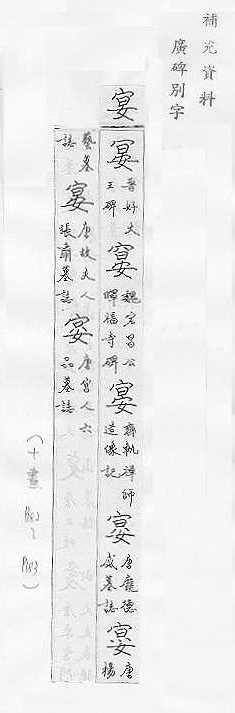 補充資料
廣碑別字
宴
宴晉好大王碑宴魏宕昌公暉福寺碑宴齊軌禪師造像記宴唐龐德威墓誌宴唐楊
藝墓誌宴唐故夫人張墓誌宴唐宮人六品墓誌
(十畫)